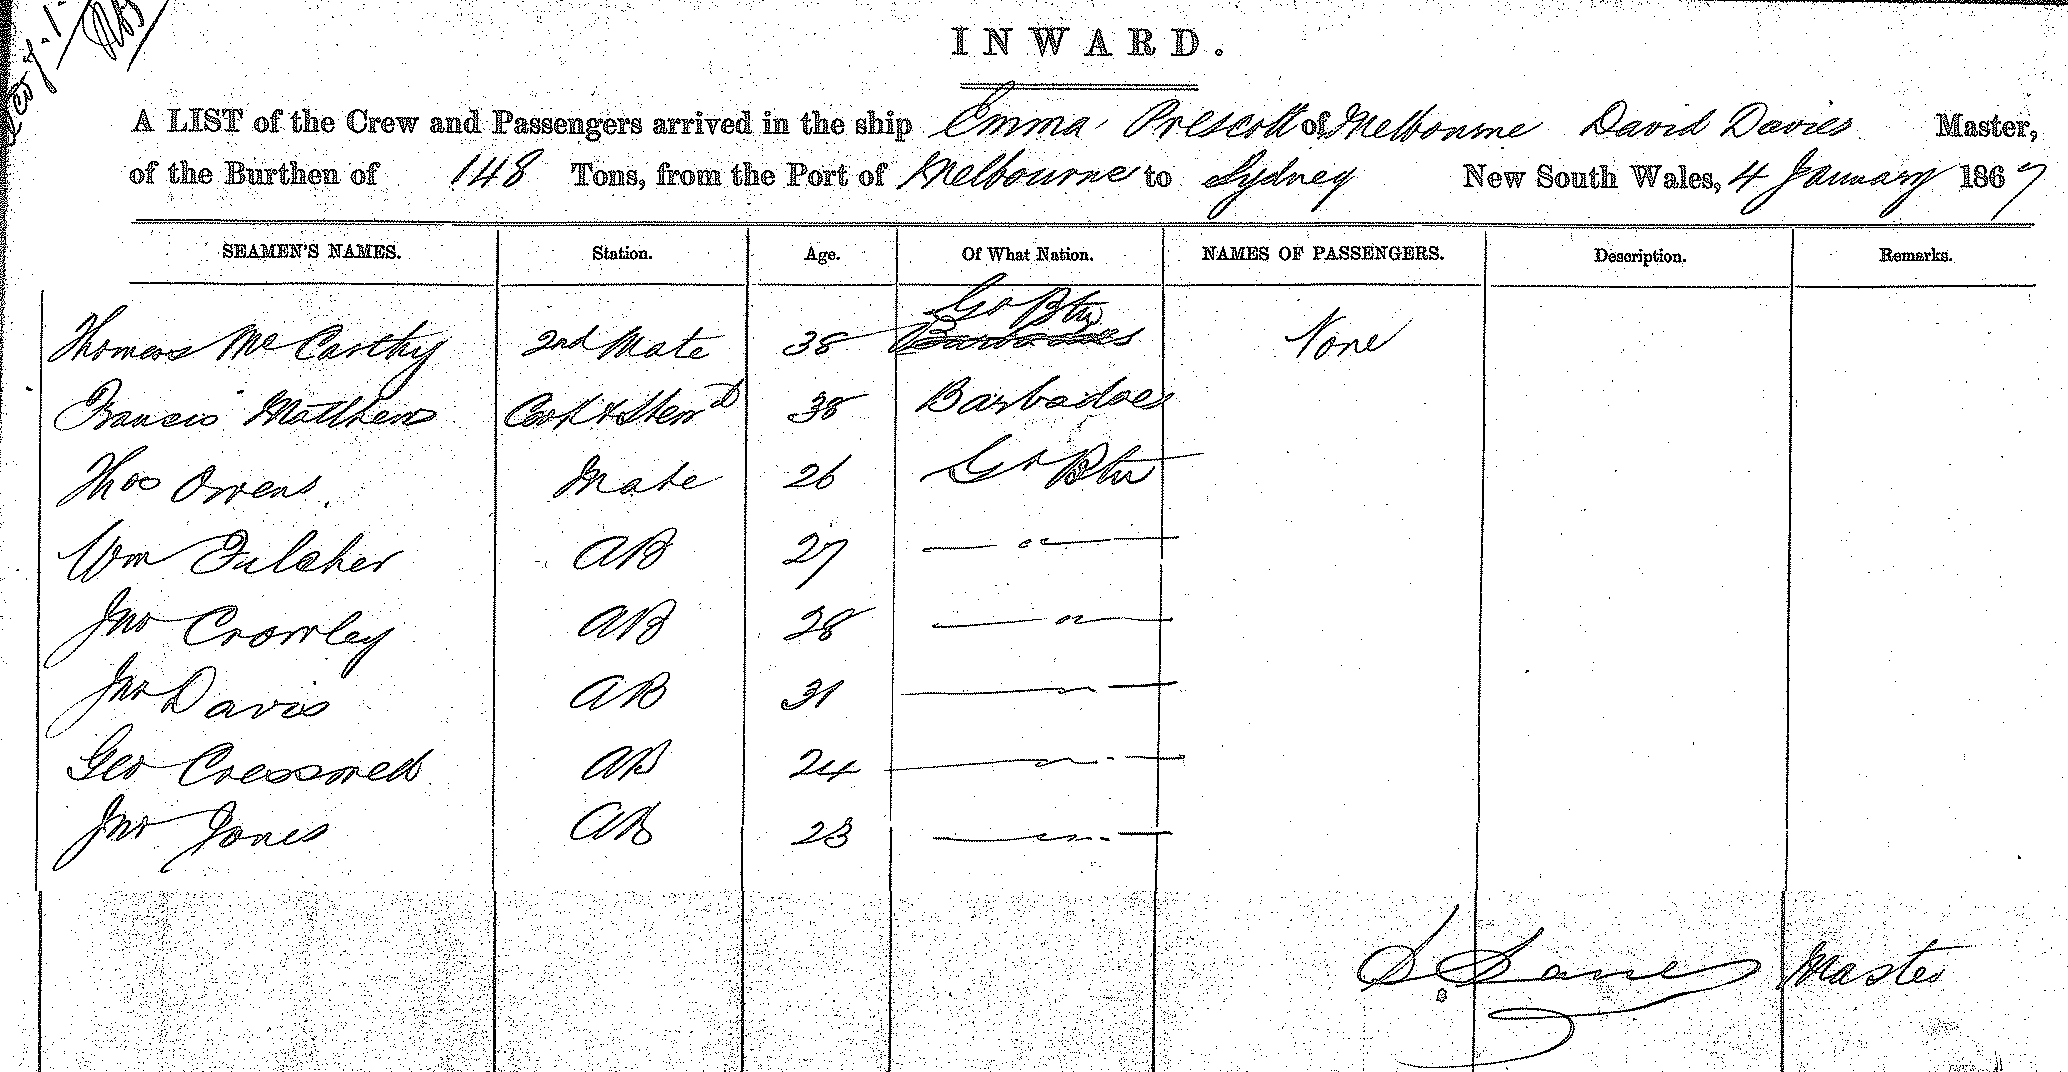 INWARD.
A LIST of the Crew and Passengers arrived in the ship Emma Prescott of Melbourne David Davies Master,
of the Burthen of 148 Tons, from the Port of Melbourne to Sydney New South Wales, 4 January 1867
SEAMEN'S NAMES. Station. Age. Of What Nation. NAMES OF PASSENGERS. Description. Remarks.
Gt Btn
Thomas McCarthy 2nd Mate 38 Barbadoes None
Francis Matthews Cook & Stewd 38 Barbadoes
Thos Owens Mate 26 Gt Btn
Wm Fulcher AB 27 — " —
Jno Crowley AB 28 — " —
Jno Davis AB 31 — " —
Geo Cresswell AB 24 — " —
Jno Jones AB 23 — " —
D. Davies Master